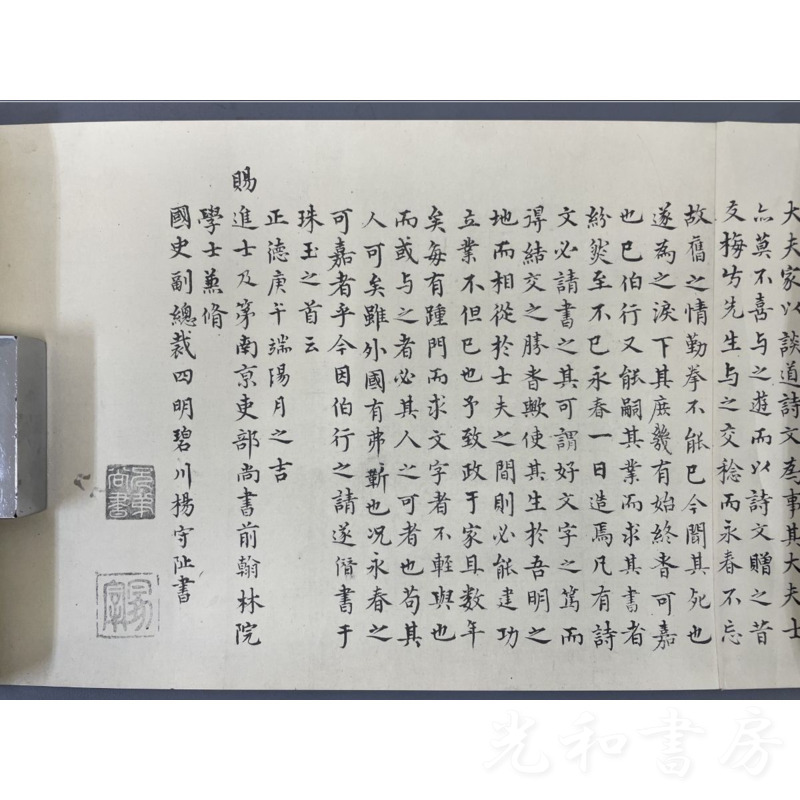 大夫家以談道詩文為事其大夫士
亦莫不喜与之遊而以詩文贈之昔
友梅岩先生与之交稔而永春不忘
故舊之情勤拳不能已今聞其死也
遂為之淚下其庶幾有始終者可嘉
也已伯行又能嗣其業而求其書者
紛然至不已永春一日造焉凡有詩
文必請書之其可謂好文字之篤而
得結交之勝者歟使其生於吾明之
地而相從於士夫之間則必能建功
立業不但已也予致政于家且数年
矣每有踵門而求文字者不輕與也
而或与之者必其人之可者也苟其
人可矣雖外國有弗靳也况永春之
可嘉者乎今因伯行之請遂僭書于
珠玉之首云
正德庚午端陽月之吉
賜進士及第南京吏部尚書前翰林院
學士兼脩
國史副總裁四明碧川楊守阯書
光和書房